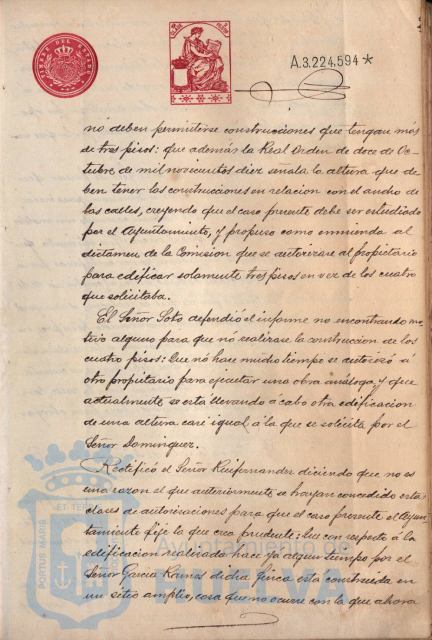 TIMBRE DEL ESTADO
A.3.224.594*
no deben permitirse construcciones que tengan más
de tres pisos: que además la Real Orden de doce de Oc-
tubre de mil novecientos diez señala la altura que de-
ben tener las construcciones en relacion con el ancho de
las calles, creyendo que el caso presente debe ser estudiado
por el Ayuntamiento, y propuso como enmienda al
dictamen de la Comision que se autorizase al propietario
para edificar solamente tres pisos en vez de los cuatro
que solicitaba.
El Señor Soto defendió el informe no encontrando mo-
tivo alguno para que nó realizase la construccion de los
cuatro pisos: Que nó hace mucho tiempo se autorizó á
otro propietario para ejecutar una obra análoga, y que
actualmente, se está llevando a cabo otra edificacion
de una altura casi igual á la que se solicita por el
Señor Dominguez.
Rectificó el Señor Ruifernandez diciendo que no es
una razon el que anteriormente se hayan concedido esta
clase de autorizaciones para que el caso presente el Ayun-
tamiento fije lo que crea prudente; que con respecto á la
edificacion realizada hace ya algun tiempo por el
Señor Garcia Ramos dicha finca esta construida en
un sitio amplio, cosa que no ocurre con la que ahora
PORTUS MARIS ET TER
Ayuntamiento de
HUELVA